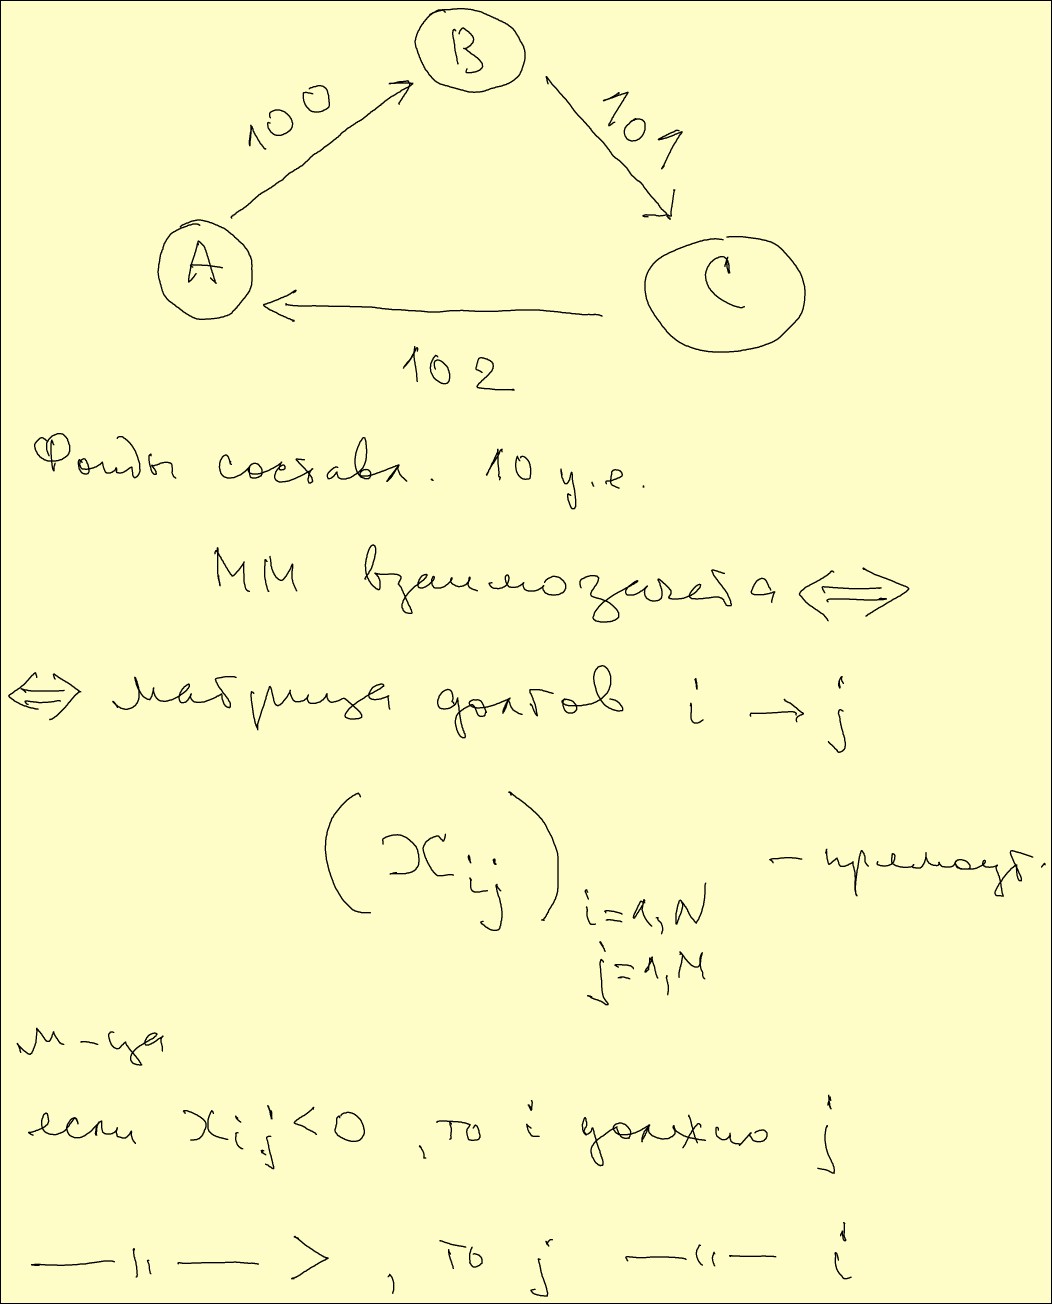 B
100
101
A
C
102
Фонды составл. 10 у.е.
ММ взаимозачета ⟺
⟺ матрица долгов i → j
(x_ij) i=1,N j=1,M - прямоуг.
м-ца
если x_ij < 0, то i должно j
—〃— >, то j —〃— i